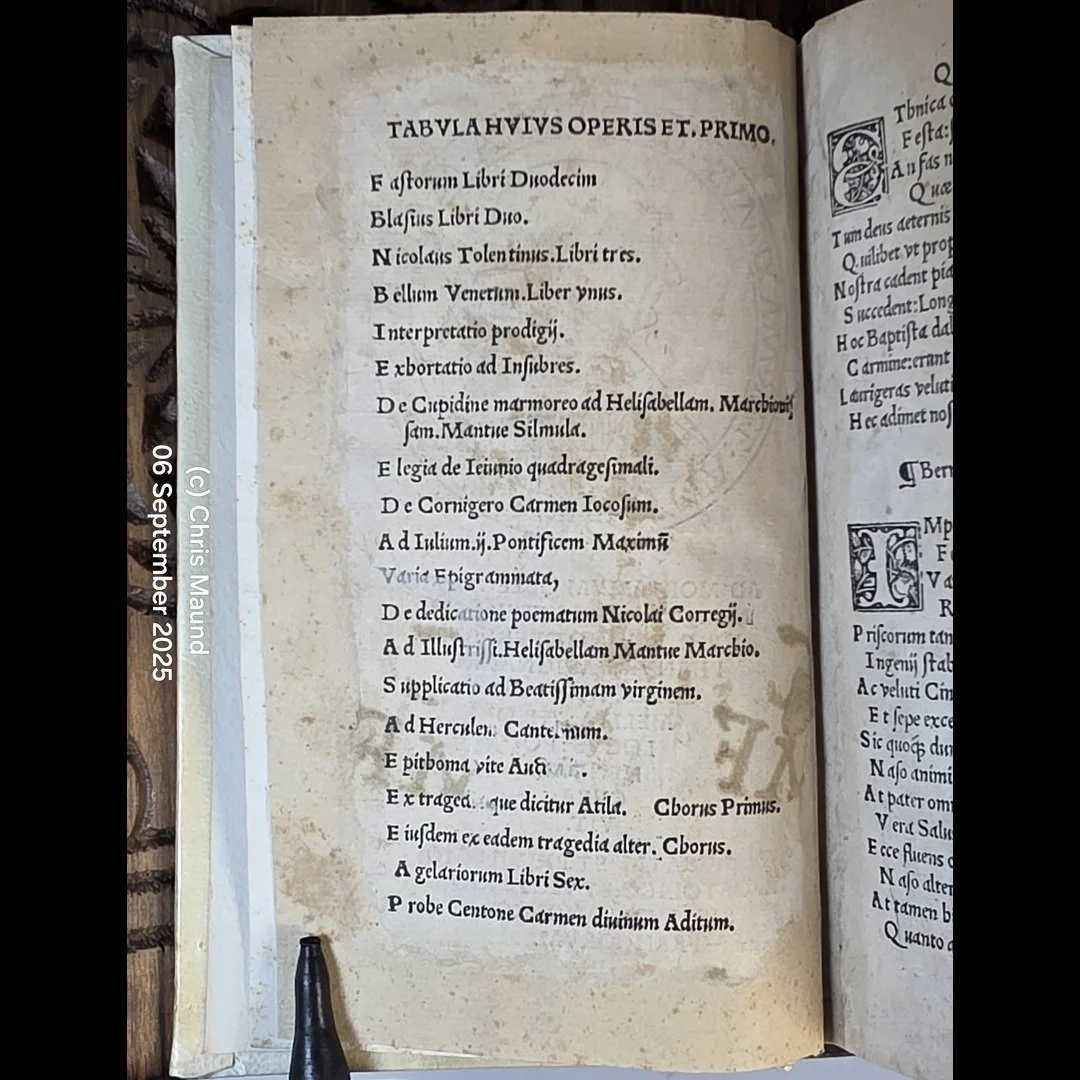 TABVLA HVIVS OPERIS ET. PRIMO.
F astorum Libri Duodecim
Blasius Libri Duo.
N icolaus Tolentinus. Libri tres.
B ellum Venetum. Liber vnus.
Interpretatio prodigij.
E xhortatio ad Insubres.
D e Cupidine marmoreo ad Helisabellam. Marchionis
sam. Mantue Silmula.
E legia de Ieiunio quadragesimali.
D e Cornigero Carmen Iocosum.
A d Iulium. ij. Pontificem Maximū
Varia Epigrammata,
D e dedicatione poematum Nicolai Corregij.
A d Illustrissi. Helisabellam Mantue Marchio.
S upplicatio ad Beatissimam virginem.
A d Herculem Cantelmum.
E pithoma vite
E x que dicitur Atila. Chorus Primus.
E iusdem ex eadem tragedia alter. Chorus.
A gelariorum Libri Sex.
P robe Centone Carmen diuinum Aditum.
Thnica
Festa:
An fas
Quæ
T um deus aeternis
Q uilibet vt
N ostra cadent
S uccedent:
H oc Baptista
C armine: erant
L aurigeras
H ec adimet
¶
P riscorum
Ingenij
A c veluti
E t sepe
Sic quoqꝫ
N aso animi
A t pater
V era
E cce fluens
N aso alter
A t tamen
Q uanto
(c) Chris Maund
06 September 2025